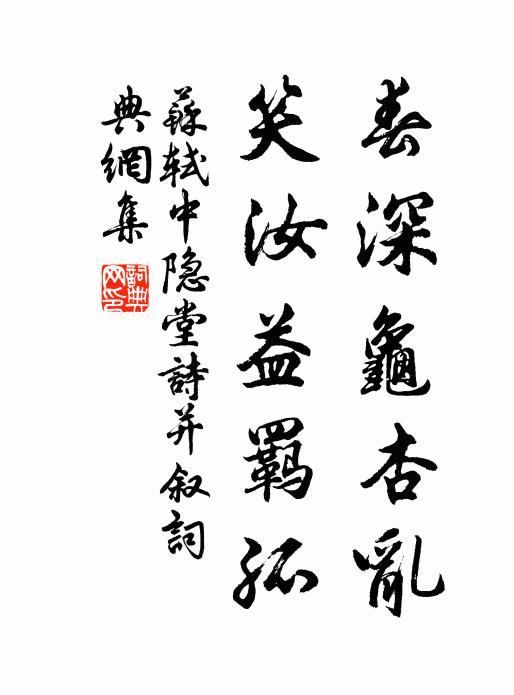 春深龜杏亂
笑汝益羈孤
蘇軾中隐堂詩并叙詞
典網集
詞典
网印